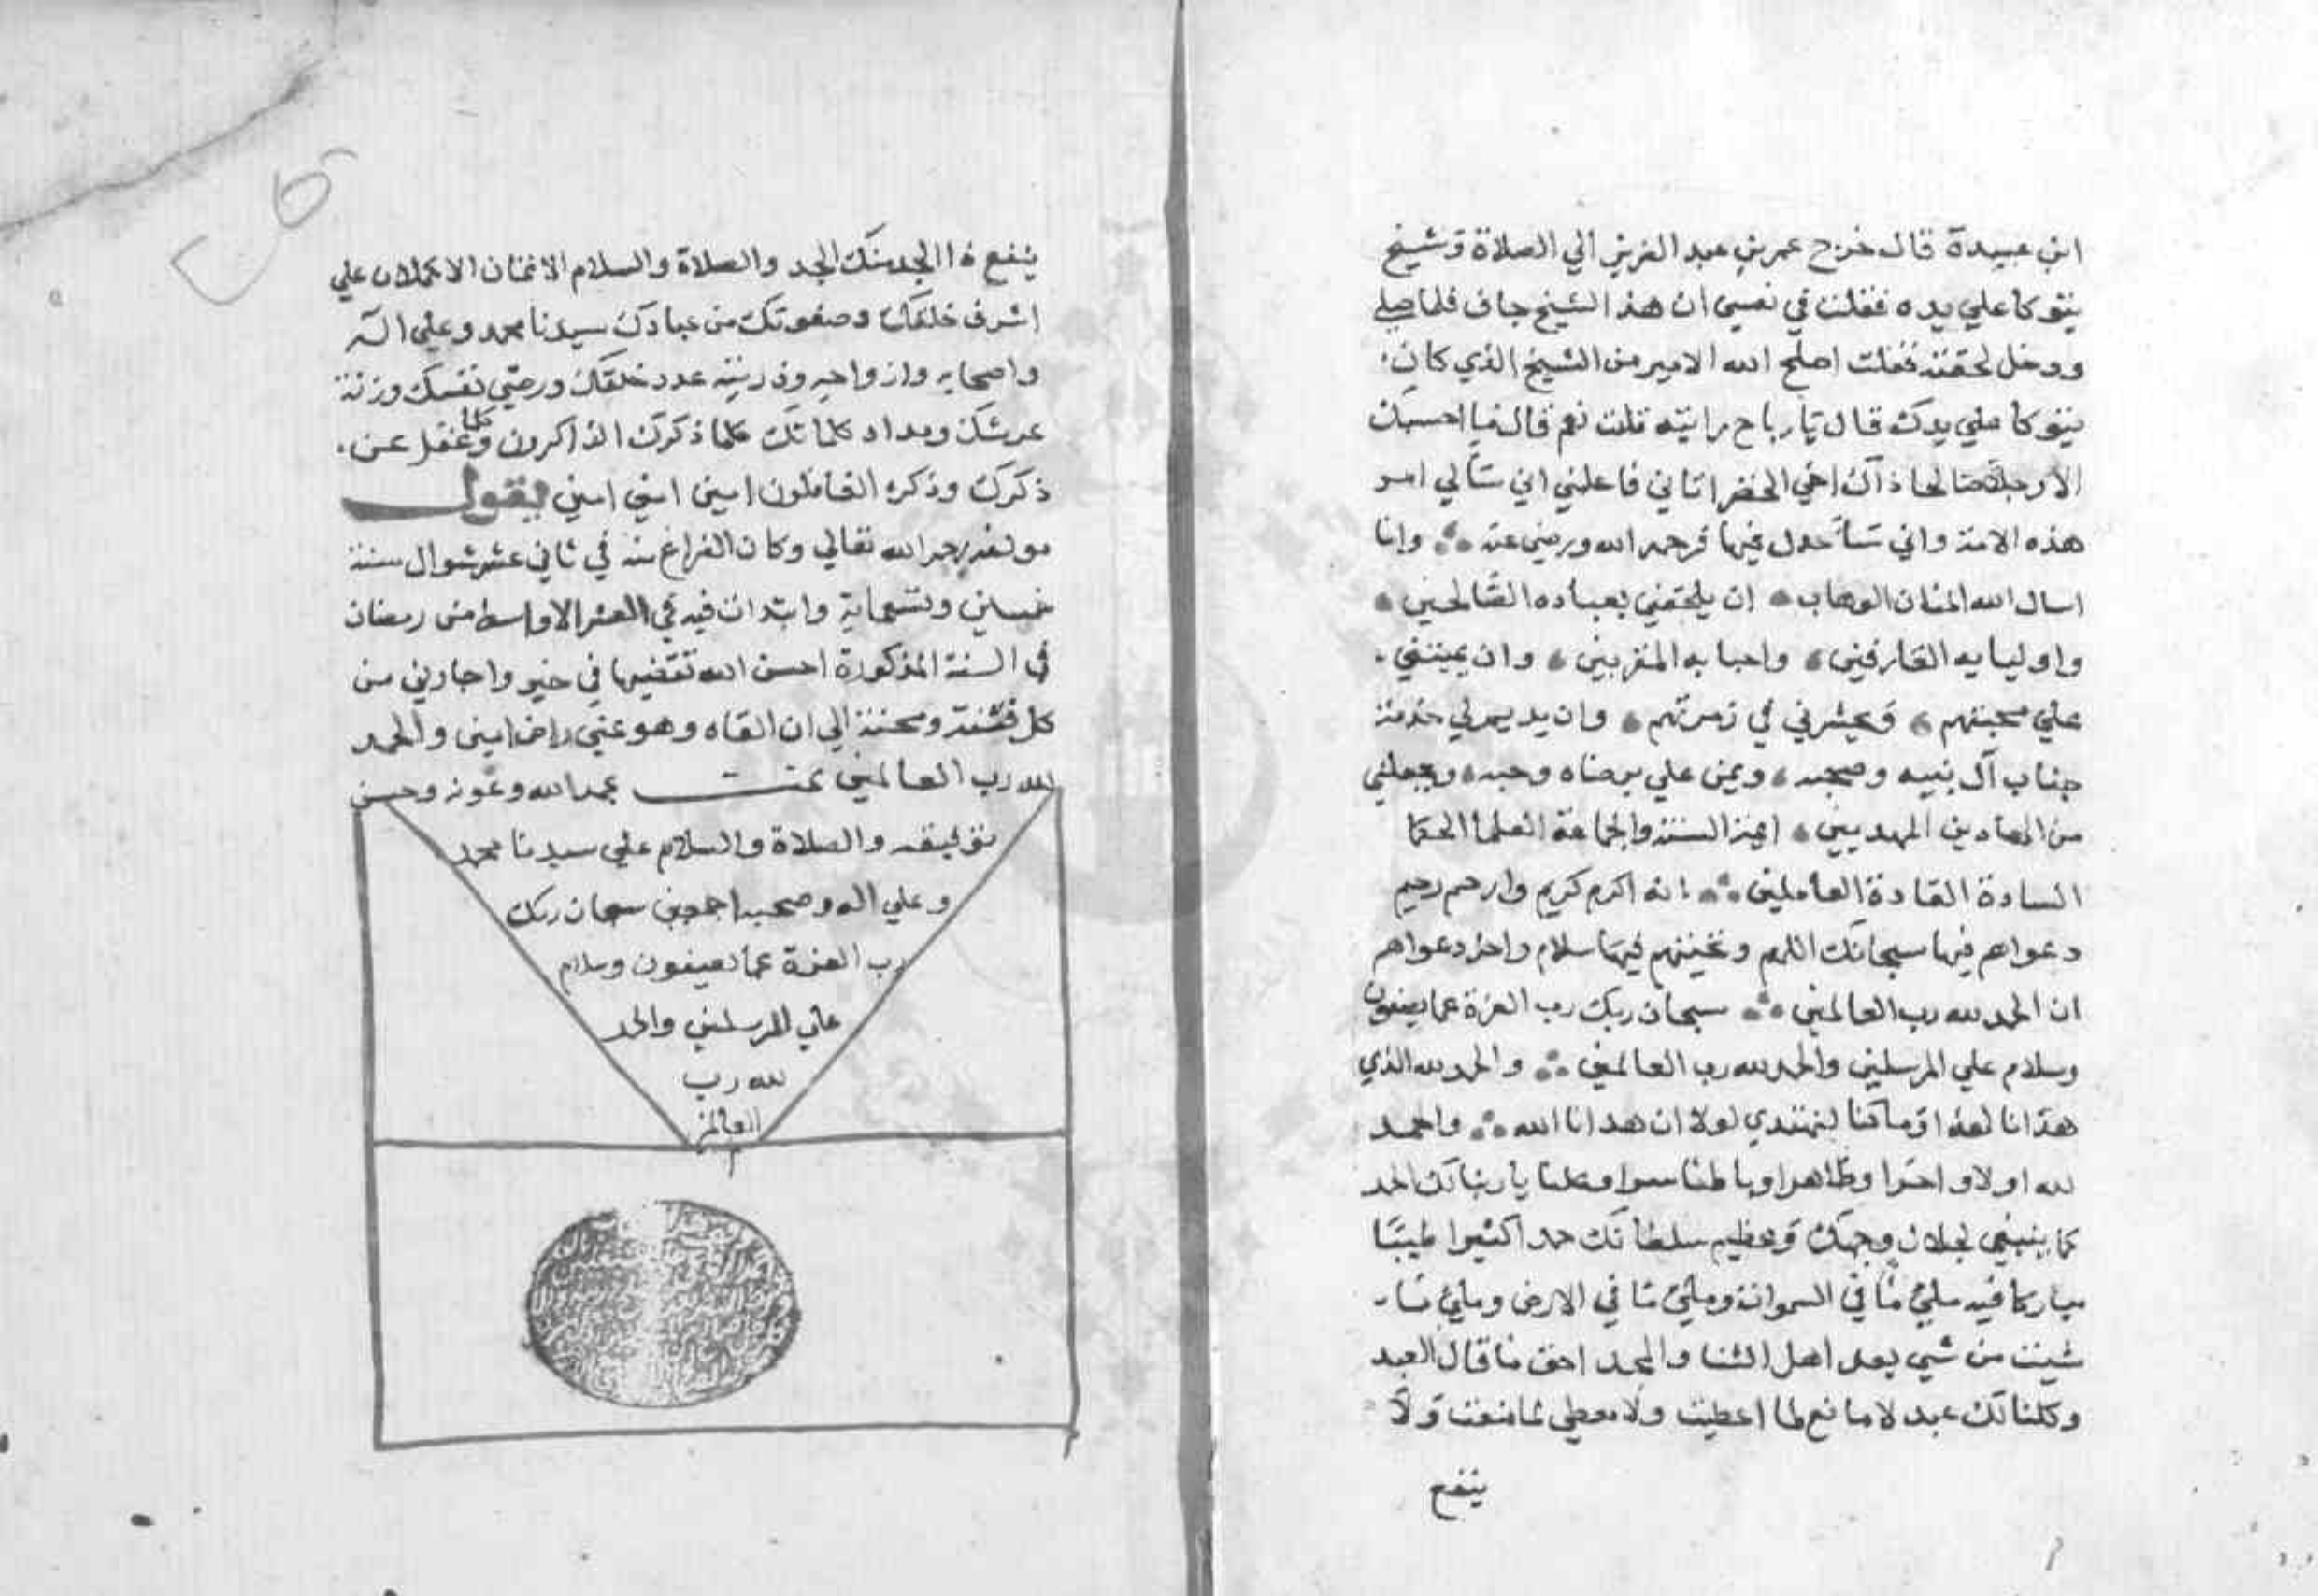 ابن عبيدة قال خرج عمر بن عبد العزيز الي الصلاة وشيخ
يتوكا علي يده فقلت في نفسي ان هذ الشيخ جاف فلما صلي
ودخل لحقته فقلت اصلح الله الامير من الشيخ الذي كان
يتوكا علي يدك قال يا رباح رايته قلت نعم قال فما احسبك
الا رجلا صالحا ذاك اخي الخضر اتاني فاعلمني اني سالي امر
هذه الامة واني ساعدل فيها فرحمه الله ورضي عنه وانا
اسال الله المنان الوهاب ان يلحقني بعباده الصالحين
واوليايه العارفين واحبابه المقربين وان يميتني
علي محبتهم ويحشرني في زمرتهم وان يديم لي خدمة
جناب آل نبيه وصحبه ويمن علي برضاه وحبه ويجعلني
من الهادين المهديين ايمة السنة والجماعة العلما الحكما
السادة القادة العاملين انه اكرم كريم وارحم رحيم
دعواهم فيها سبحانك اللهم وتحيتهم فيها سلام واخر دعواهم
ان الحمد لله رب العالمين سبحان ربك رب العزة عما يصفون
وسلام علي المرسلين والحمد لله رب العالمين والحمد لله الذي
هدانا لهذا وما كنا لنهتدي لولا ان هدانا الله واحمد
لله اولا واخرا وظاهرا وباطنا سرا وعلنا يا ربنا لك الحمد
كما ينبغي لجلال وجهك وعظيم سلطانك حمدا كثيرا طيبا
مباركا فيه ملئ ما في السموات وملئ ما في الارض وملئ ما
شيت من شي بعد اهل الثنا والمجد احق ما قال العبد
وكلنا لك عبد لا مانع لما اعطيت ولا معطي لما منعت ولا
ينفع
ينفع ذا الجد منك الجد والصلاة والسلام الاتمان الاكملان علي
اشرف خلقك وصفوتك من عبادك سيدنا محمد وعلي اله
واصحابه وازواجه وذريته عدد خلقك ورضي نفسك وزنة
عرشك ومداد كلماتك كلما ذكرك الذاكرون وكلما غفل عن
ذكرك وذكره الغافلون امين امين امين يقول
مولفه رحمه الله تعالي وكان الفراغ منه في ثاني عشر شوال سنة
خمسين وتسعماية وابتدات فيه في العشر الاواسط من رمضان
في السنة المذكورة احسن الله تقضيها في خير واجارني من
كل فتنة ومحنة الي ان القاه وهو عني راض امين والحمد
لله رب العالمين تمت بحمد الله وعونه وحسن
توفيقه والصلاة والسلام علي سيدنا محمد
وعلي اله وصحبه اجمعين سبحان ربك
رب العزة عما يصفون وسلام
علي المرسلين والحمد
لله رب
العالمين
م